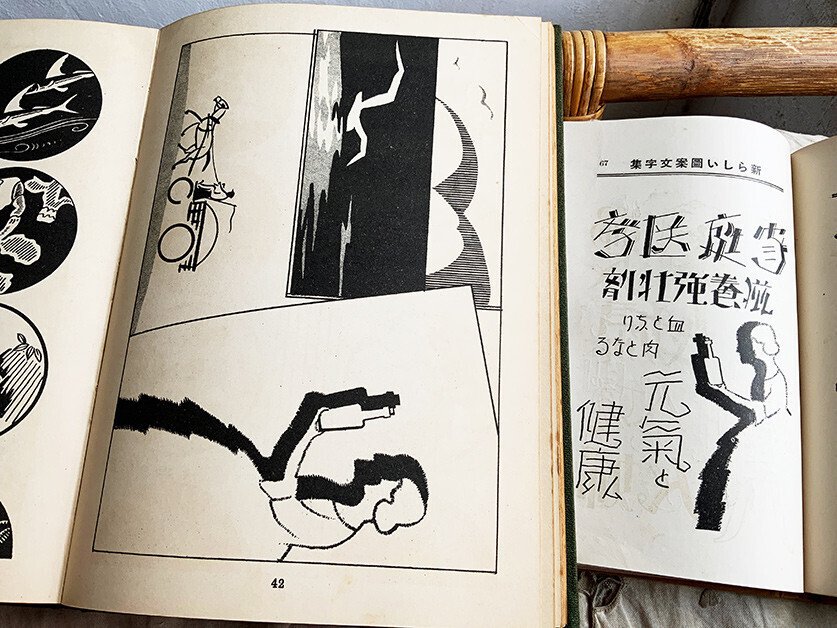 42
新らしい圖案文字集
67
庭医
滋養強壮剤
血となり
肉となる
元氣と
健康